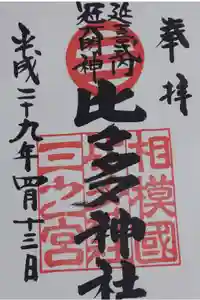 奉拝
延喜式内
冠大明神
比々多神社
相模國
三之宮
平成二十九年四月十三日